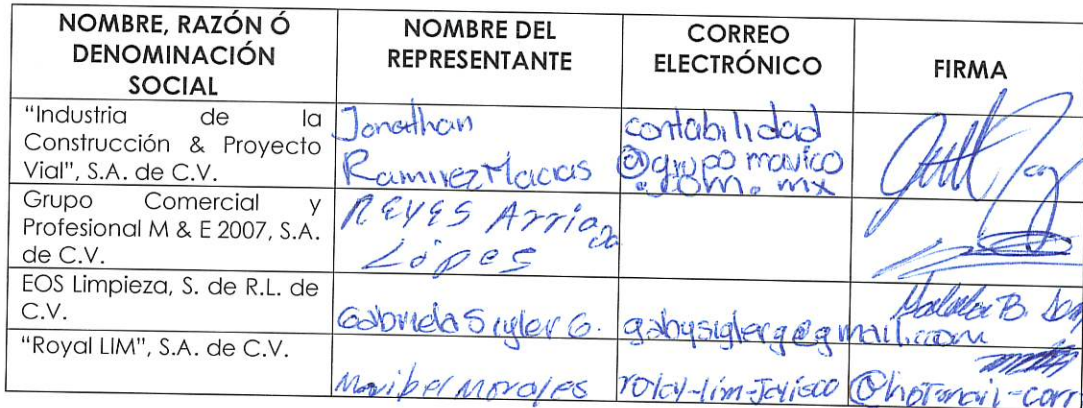 NOMBRE, RAZÓN Ó
DENOMINACIÓN
SOCIAL
NOMBRE DEL
REPRESENTANTE
CORREO
ELECTRÓNICO
FIRMA
"Industria de la
Construcción & Proyecto
Vial", S.A. de C.V.
Jonathan
Ramirez Macias
contabilidad
@grupo mavico
.com.mx
Grupo Comercial y
Profesional M & E 2007, S.A.
de C.V.
REYES Arriaga
López
EOS Limpieza, S. de R.L. de
C.V.
Gabriela Sigler G.
gabysiglerg@gmail.com
"Royal LIM", S.A. de C.V.
Maribel Morales
@hotmail.com